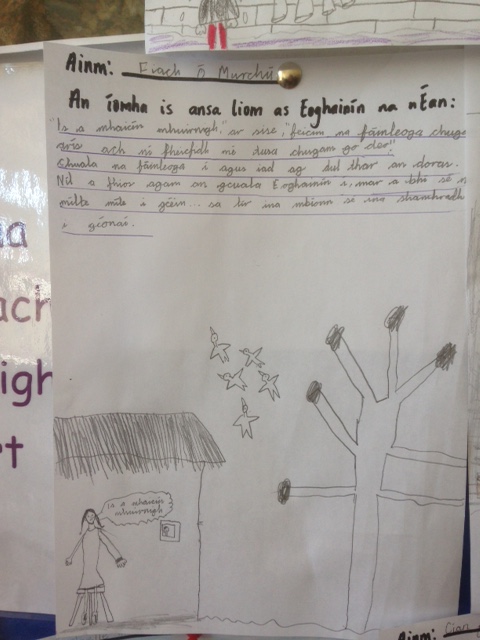 Ainm: Fiach Ó Murchú
An íomha is ansa liom as Eoghainín na nÉan:
"Is a mhaicín mhuirnigh," ar sise, "feicim na fáinleoga chuga
arís ach ní fheicfidh mé tusa chugam go deo"
Chuala na fáinleoga í agus iad ag dul thar an doras.
Níl a fhios agam an gcuala Eoghainín í, mar a bhí sé n
mílte míle i gcéin... sa tír ina mbíonn se ina shamhradh
i gcónaí.
Is a mhaicín
mhuirnigh
a
ach
igh
t
Ainm: Cian